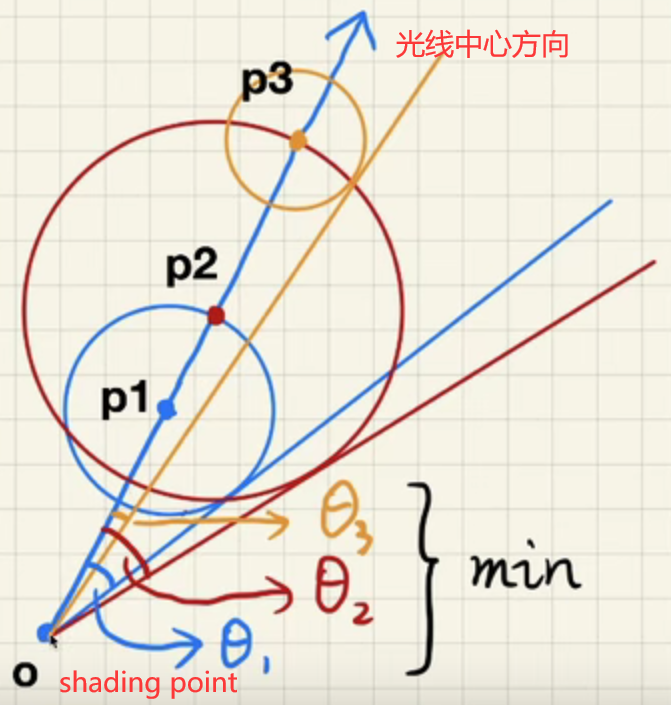 光线中心方向
p3
p2
p1
θ₃
θ₂
min
θ₁
o
shading point